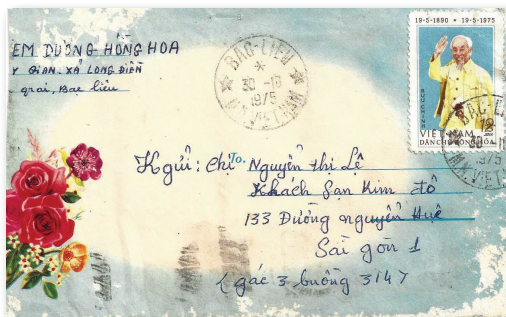 EM DƯƠNG-HỒNG HOA
Y GIAN. XÃ LONG ĐIỀN
giai, Bạc liêu
BAC-LIEU
30-10
1975
M.N. VIET-NAM
19-5-1890 • 19-5-1975
BƯU CHÍNH
VIỆT-NAM
DÂN CHỦ CỘNG HÒA
BAC-LI
1975
M.N. VIET
K gửi: Chị To. Nguyễn thị Lệ
Khách Sạn Kim đô
133 Đường nguyễn Huệ
Sài gòn 1
(gác 3 buồng 314)